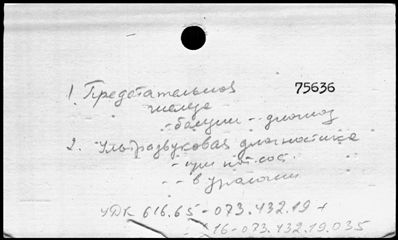 1. Предстательная 75636
железа
- - болезни - - диагноз
2. Ультразвуковая диагностика
- при
- - в урологии
УДК 616.65-073.432.19 +
616-073.432.19.035